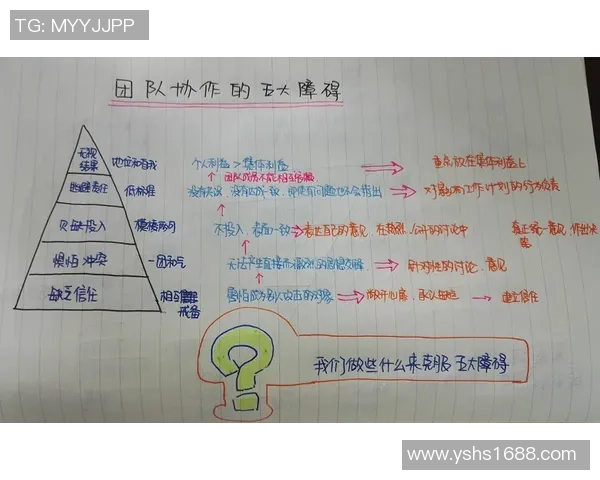 TG: MYYJJPP
团队协作的五大障碍
无视
结果
地位和自我
个人利益 > 集体利益
重点放在集体利益上
逃避责任
低标准
团队成员不能相互
没有共识，没有达成一致，即使有问题也不会指出
对影响工作计划的行为负责
欠缺投入
模棱两可
不投入，表面一致
表达自己的意见，在激烈、公开的讨论中
真正统一意见，作出决策
惧怕冲突
一团和气
无法产生直接而激烈的思想交锋
针对性的讨论、意见
缺乏信任
相互
戒备
害怕成为别人攻击的对象
敞开心扉，承认
建立信任
我们做些什么来克服五大障碍
www.yshs1688.com